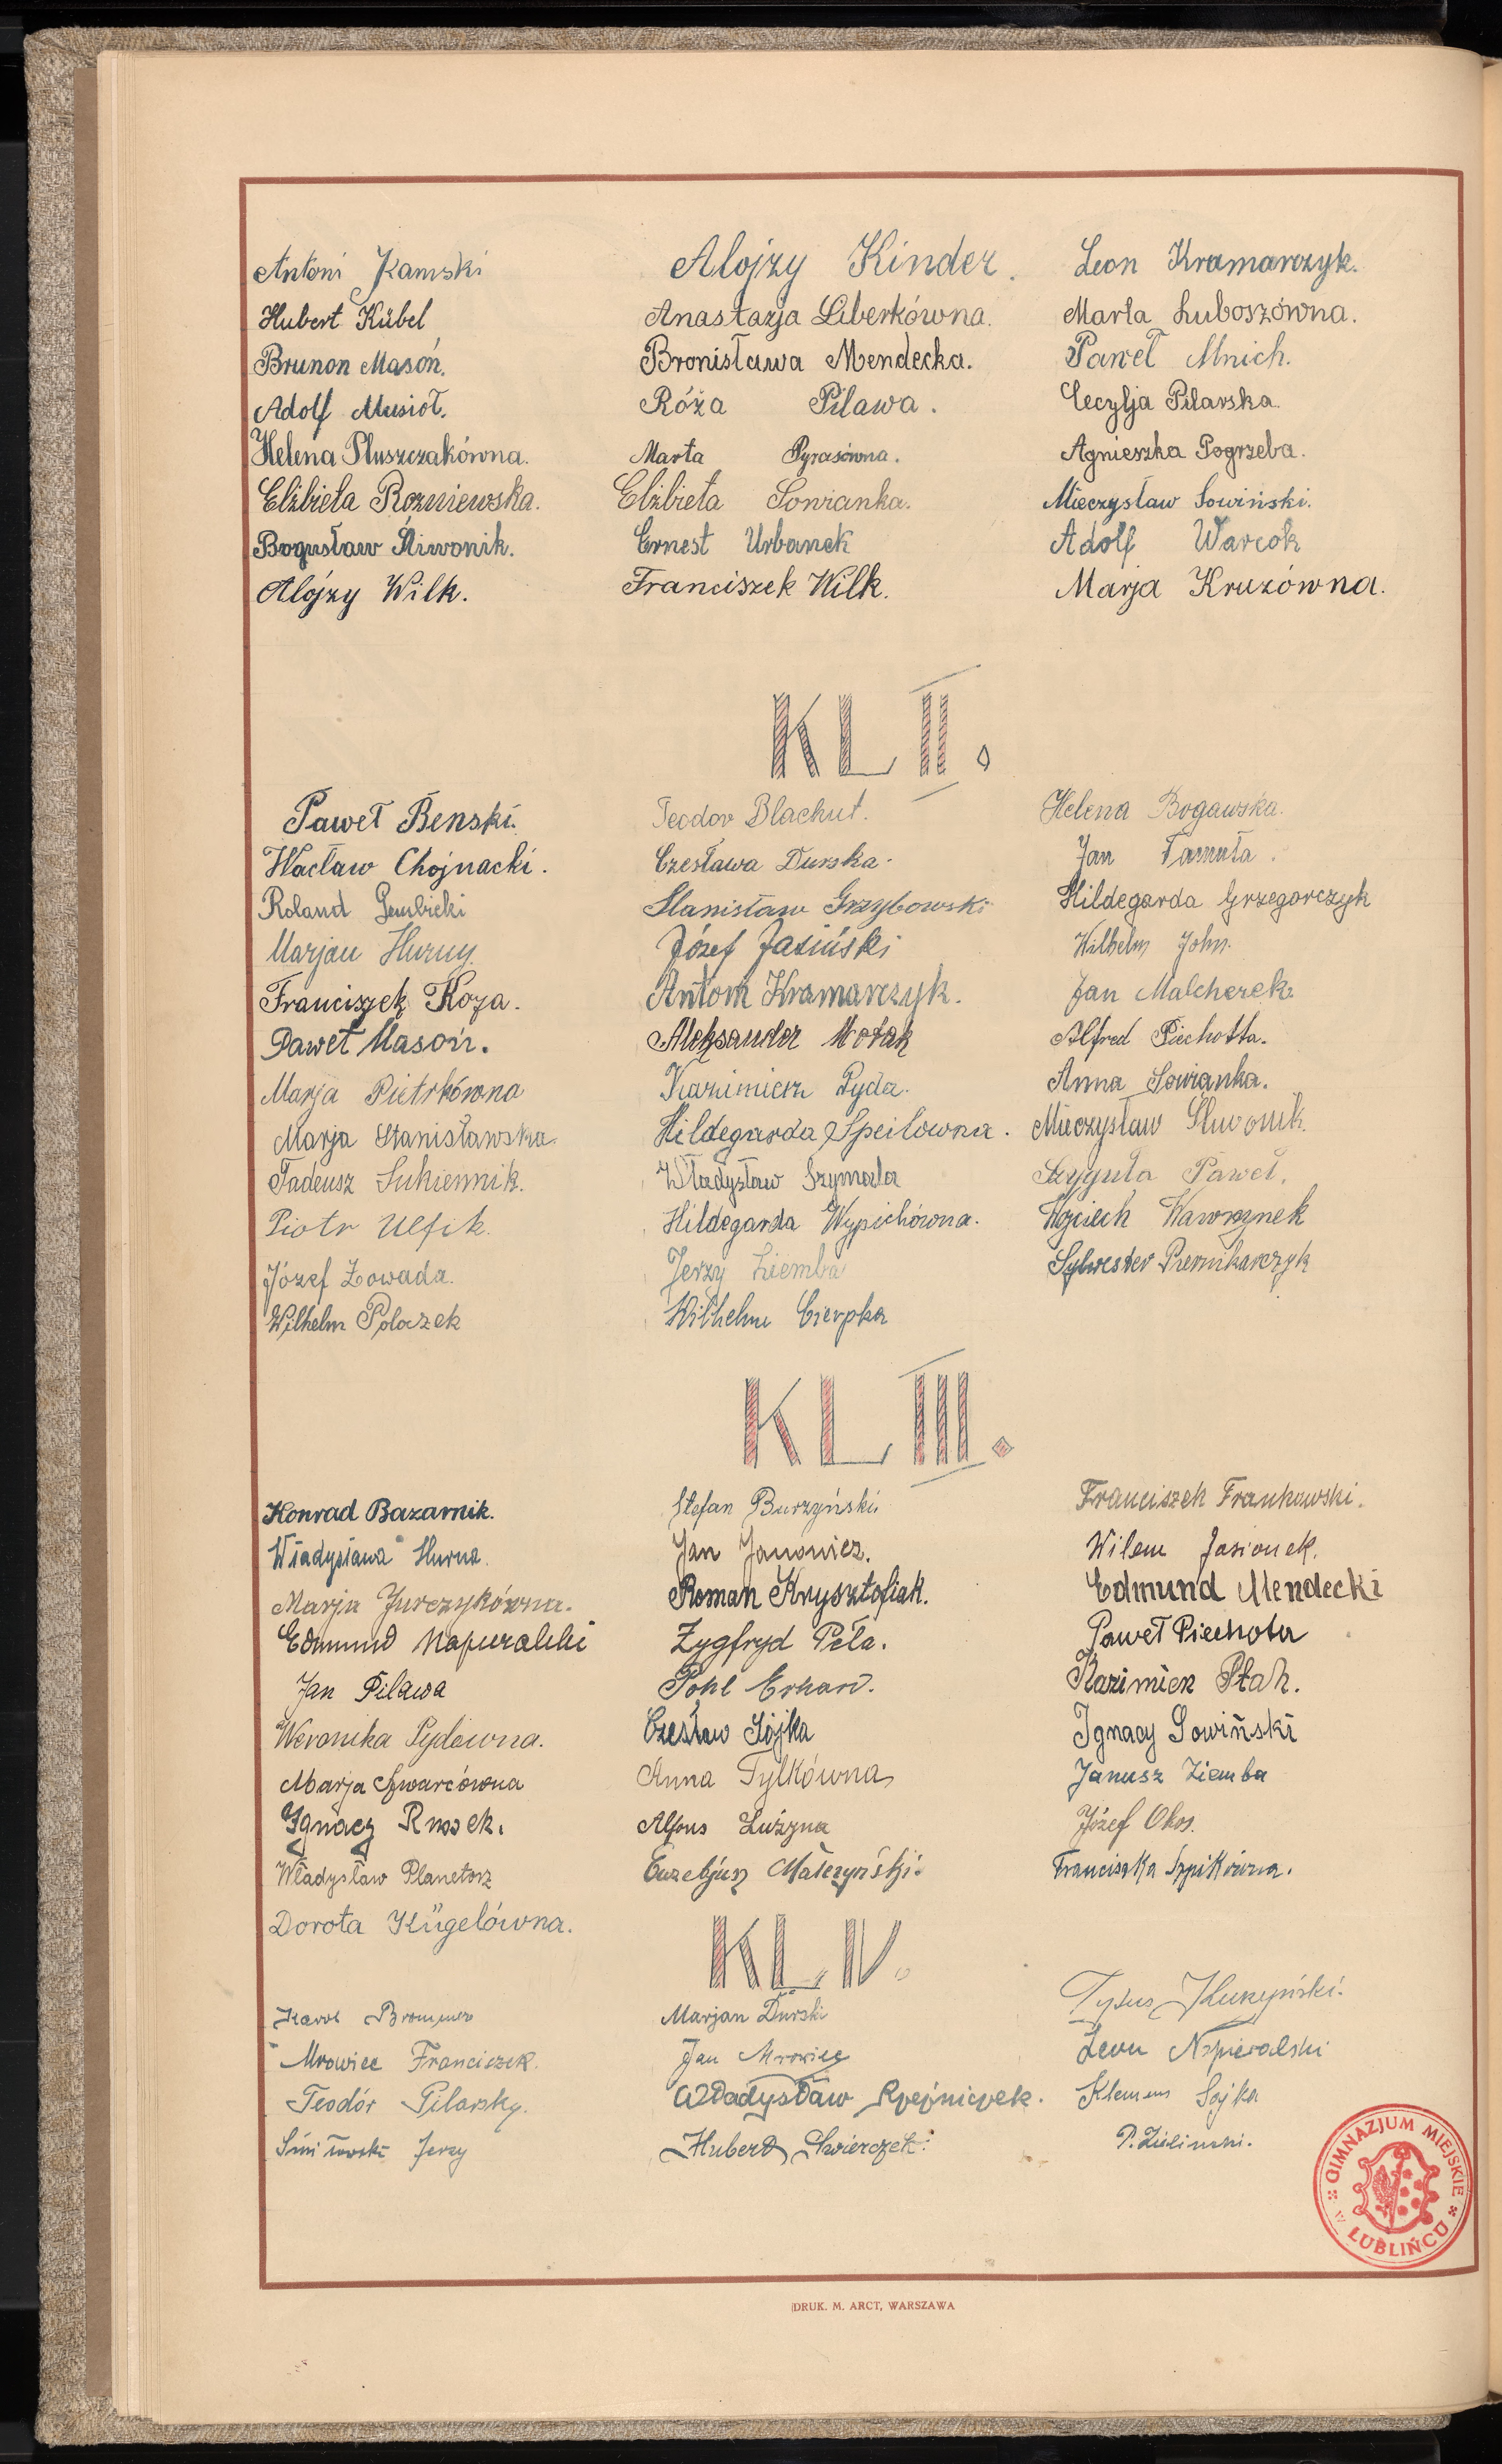 Antoni Kamski Alojzy Kinder. Leon Kramarczyk.
Hubert Kübel Anastazja Liberkówna. Marta Luboszówna.
Brunon Masoń. Bronisława Mendecka. Paweł Mnich.
Adolf Musioł. Róża Pilawa. Cecylja Pilarska
Helena Pluszczakówna. Marta Pyrasówna. Agnieszka Pogrzeba.
Elżbieta Rozniewska. Elżbieta Sowianka. Mieczysław Sowiński.
Bogusław Śliwonik. Ernest Urbanek Adolf Warcok
Alojzy Wilk. Franciszek Wilk. Marja Kruzówna.
KL II.
Paweł Benski. Teodor Blachut. Helena Bogawska.
Wacław Chojnacki. Czesława Durska. Jan Famuła.
Roland Gembicki Stanisław Grzybowski Hildegarda Grzegorczyk
Marjan Hurny. Józef Jasiński Wilhelm John.
Franciszek Koza. Antoni Kramarczyk. Jan Malcherek.
Paweł Masoń. Aleksander Nowak Alfred Piechotta.
Marja Pietrkówna Kazimierz Pyda. Anna Sowianka.
Marja Stanisławska. Hildegarda Speilowna. Mieczysław Śliwonik.
Tadeusz Sukiennik. Władysław Szymala Szyguła Paweł.
Piotr Ulfik. Hildegarda Wypichówna. Wojciech Wawrzynek
Józef Zowada. Jerzy Ziemba Sylwester Piernikarczyk
Wilhelm Polaczek Wilhelm Cierpka
KL III.
Konrad Bazarnik. Stefan Burzyński Franciszek Frankowski.
Władysława Hurna. Jan Janowicz. Wilem Jasionek.
Marja Jurczykówna. Roman Krysztofiak. Edmund Mendecki
Edmund Napieralski Zygfryd Peła. Paweł Piechota
Jan Pilawa Pohl Erhard. Kazimierz Ptak.
Weronika Pydówna. Czesław Sójka Ignacy Sowiński
Marja Szwarcówna Anna Tylkówna Janusz Ziemba
Ignacy Russek. Alfons Luźyna Józef Okos.
Władysław Planetorz Euzebjusz Małczyński. Franciszka Szpikówna.
Dorota Kügelówna.
KL IV.
Karol Brommer Marjan Durski Tytus Kuczyński.
Mrowiec Franciszek. Jan Mrowiec Leon Napieralski
Teodór Pilarsky. Władysław Rzeźniczek. Klemens Sojka
Jerzy Hubert Świerczek. P. Zieliński.
GIMNAZJUM MIEJSKIE W LUBLIŃCU
DRUK. M. ARCT, WARSZAWA